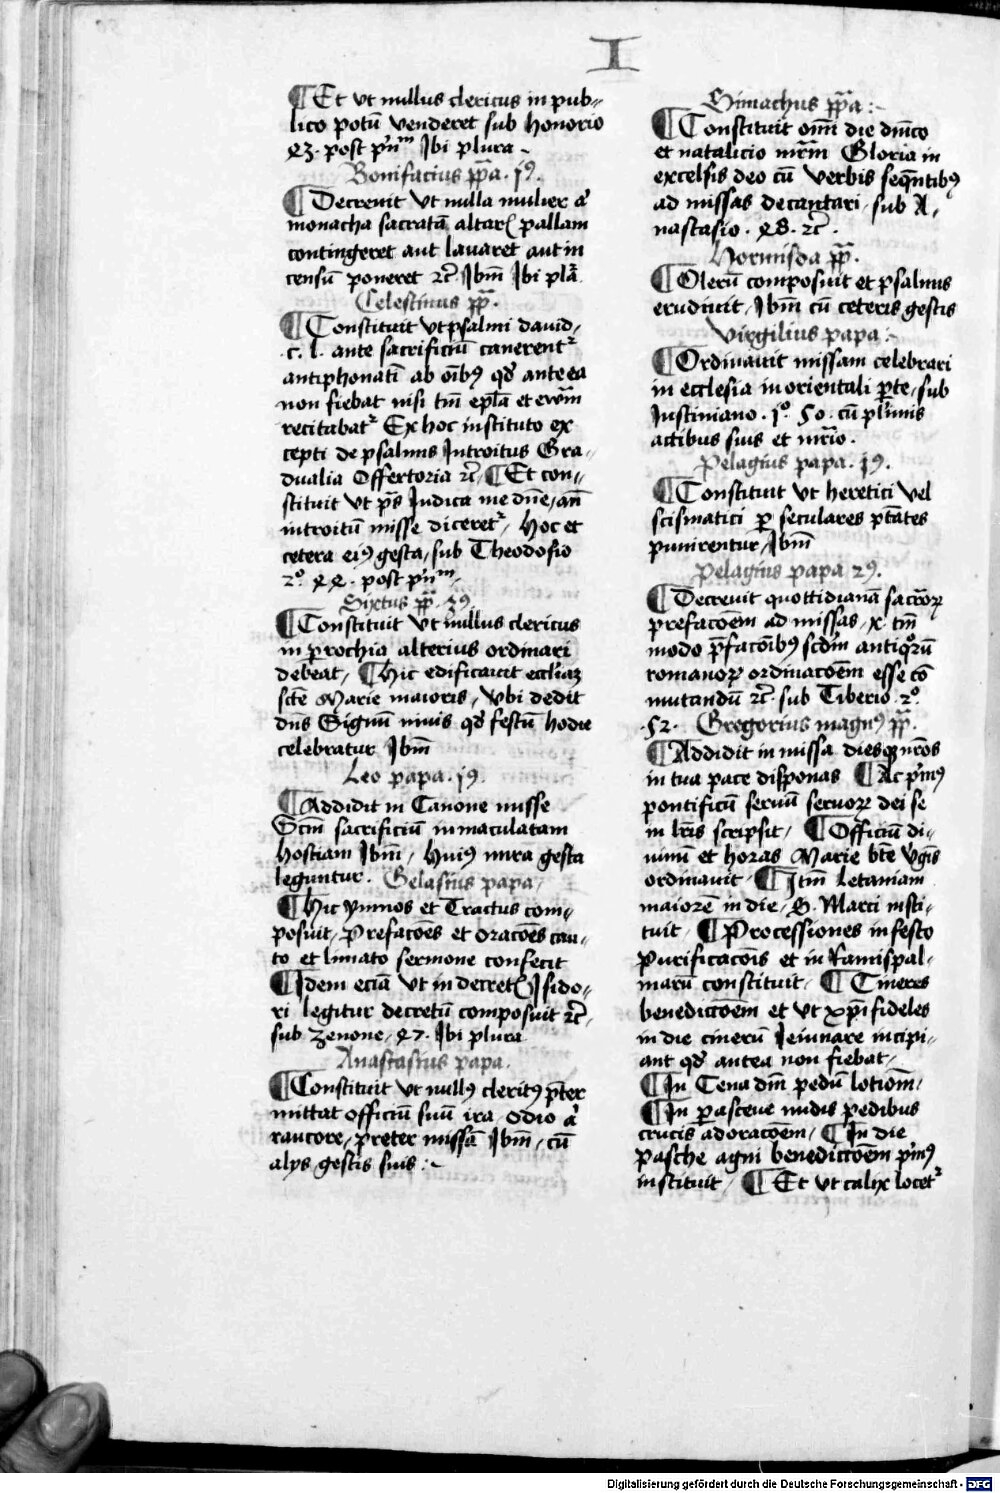 I
¶ Et vt nullus clericus in pub-
lico potū venderet sub honorio
43. post pñm Ibi plura
Bonifacius pp̄a. 1⁹.
¶ Decreuit vt nulla mulier a͛
monacha sacratā altar͛ pallam
contingeret aut lauaret aut in
censū poneret ꝛc̄. Ibm̄ Ibi pla͛
Celestinus pp̄.
¶ Constituit vt psalmi dauid,
.c. l. ante sacrificiū canerent᷑
antiphonatī ab oīb⁹ qd͛ ante ea
non fiebat nisi tm̄ epl̄a et ewm̄
recitabat᷑ Ex hoc instituto ex
cepti de psalmis Introitus Gra-
dualia Offertoria ꝛc̄, ¶ Et con-
stituit vt p̄s Iudica me dn̄e, an̄
introitū misse diceret᷑, Hoc et
cetera ei⁹ gesta, sub Theodosio
2⁰. 44. post pñm,
Sixtus pp̄. 3⁹.
¶ Constituit vt nullus clericus
in prochia alterius ordinari
debeat, ¶ Hic edificauit eccliaȝ
scte Marie maioris, vbi dedit
dn̄s Signū niuis qd͛ festū hodie
celebratur Ibm̄
Leo papa. 1⁹.
¶ Addidit in Canone misse
Scm̄ sacrificiū inmaculatam
hostiam Ibm̄, Hui⁹ mira gesta
leguntur. Gelasius papa,
¶ Hic ymnos et Tractus com-
posuit, Prefacōes et Oracōes cau-
to et limato sermone confecit
¶ Idem eciā vt in decret͛ Isido-
ri legitur decretū composuit ꝛc̄,
sub zenone, 47. Ibi plura
Anastasius papa.
¶ Constituit vt null⁹ cleric⁹ p̄ter
mittat officiū suū ira odio a͛
rancore, preter missā Ibm̄, cū
alijs gestis suis :~
Simachus pp̄a :-
¶ Constituit om̄i die dnīco
et natalicio mr̄m Gloria in
excelsis deo cū verbis seqn̄tib⁹
ad missas decantari, sub A-
nastasio. 48. ꝛc̄.
Hormisda pp̄.
¶ Clerū composuit et psalmis
erudiuit, Ibm̄ cū ceteris gestis
virgilius papa :-
¶ Ordinauit missam celebrari
in ecclesia in orientali pte, sub
Iustiniano. 1⁰. 50. cū plimis
actibus suis et mr̄io.
Pelagius papa. 1⁹.
¶ Constituit vt heretici vel
scismatici ꝑ seculares ptātes
punirentur, Ibm̄
Pelagius papa 2⁹.
¶ Decreuit quottidianā sacroꝝ
prefacōem ad missas, x. tm̄
modo p̄facōib⁹ scdm̄ antiqⁿrū
romanoꝝ ordinacōem esse cō
mutandū ꝛc̄. sub Tiberio. 2⁰.
.52. Gregorius magn⁹ pp̄.
¶ Addidit in missa diesqȝ nr̄os
in tua pace disponas ¶ Ac p̓m⁹
pontificū seruū seruoꝝ dei se
in lr̄is scripsit, ¶ Officiū di-
uinū et horas Marie bte v̓gis
ordinauit, ¶ Itm̄ Letaniam
maiorē in die, S. Marci insti-
tuit, ¶ Processiones in festo
Purificacōis et in Ramispal-
marū constituit, ¶ Cineres
benedictōem et vt xp̄i fideles
in die cinerū Ieiunare incipi-
ant qd͛ antea non fiebat,
¶ In Cena dm̄ pedū lotiōm,
¶ In ꝑasceue nudis pedibus
crucis adoracōem, ¶ In die
pasche agni benedictōem p̓m⁹
instituit, ¶ Et vt calix locet᷑
Digitalisierung gefördert durch die Deutsche Forschungsgemeinschaft - DFG